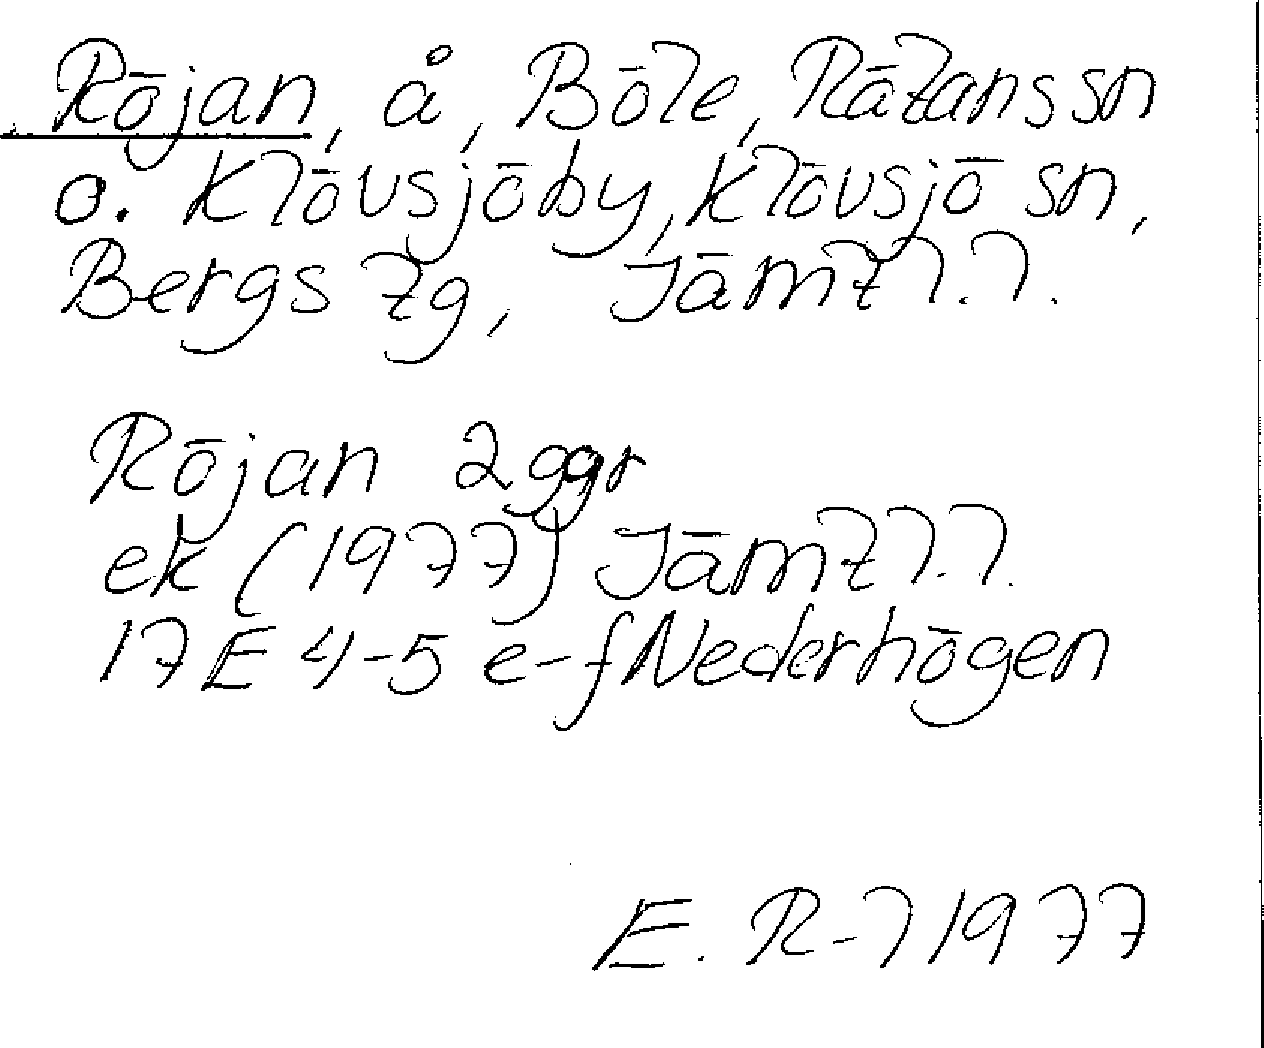 Röjan, å, Böle, Rätans sn
o. Klövsjöby, Klövsjö sn,
Bergs tg, Jämtl. l.
Röjan 2 ggr
ek (1977) Jämtl. l.
17E 4-5 e-f Nederhögen
E. R-l 1977